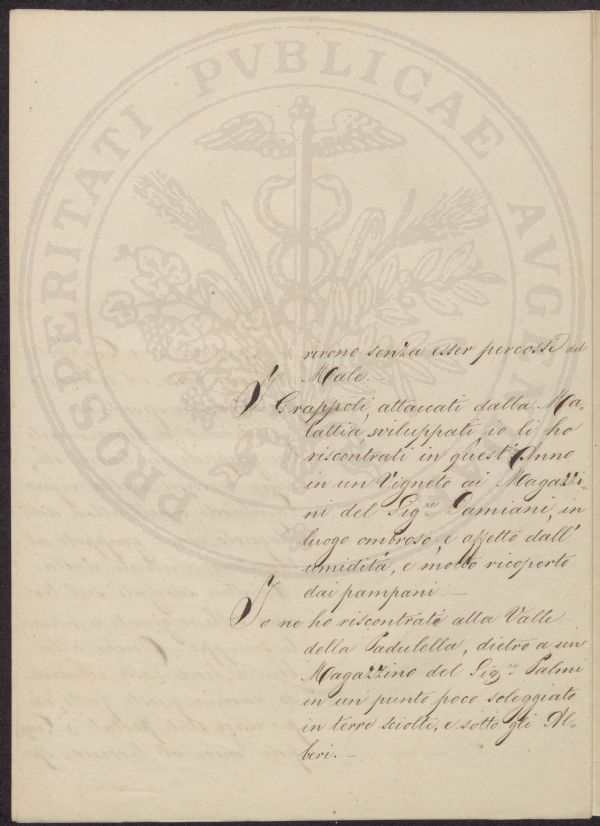 PROSPERITATI PVBLICAE AVGEN
rirono senza esser percossi dal
Male. —
I Grappoli, attaccati dalla Ma-
lattia, sviluppati, io li ho
riscontrati in quest'Anno
in un Vigneto ai Magazzi-
ni del Sigre Damiani, in
luogo ombroso, e affetto dall'
umidità, e molto ricoperto
dai pampani. —
Io ne ho riscontrato alla Valle
della Padulella, dietro a un
Magazzino del Sigre Palmi
in un punto poco soleggiato
in terre sciolte, e sotto gli Al-
beri. —